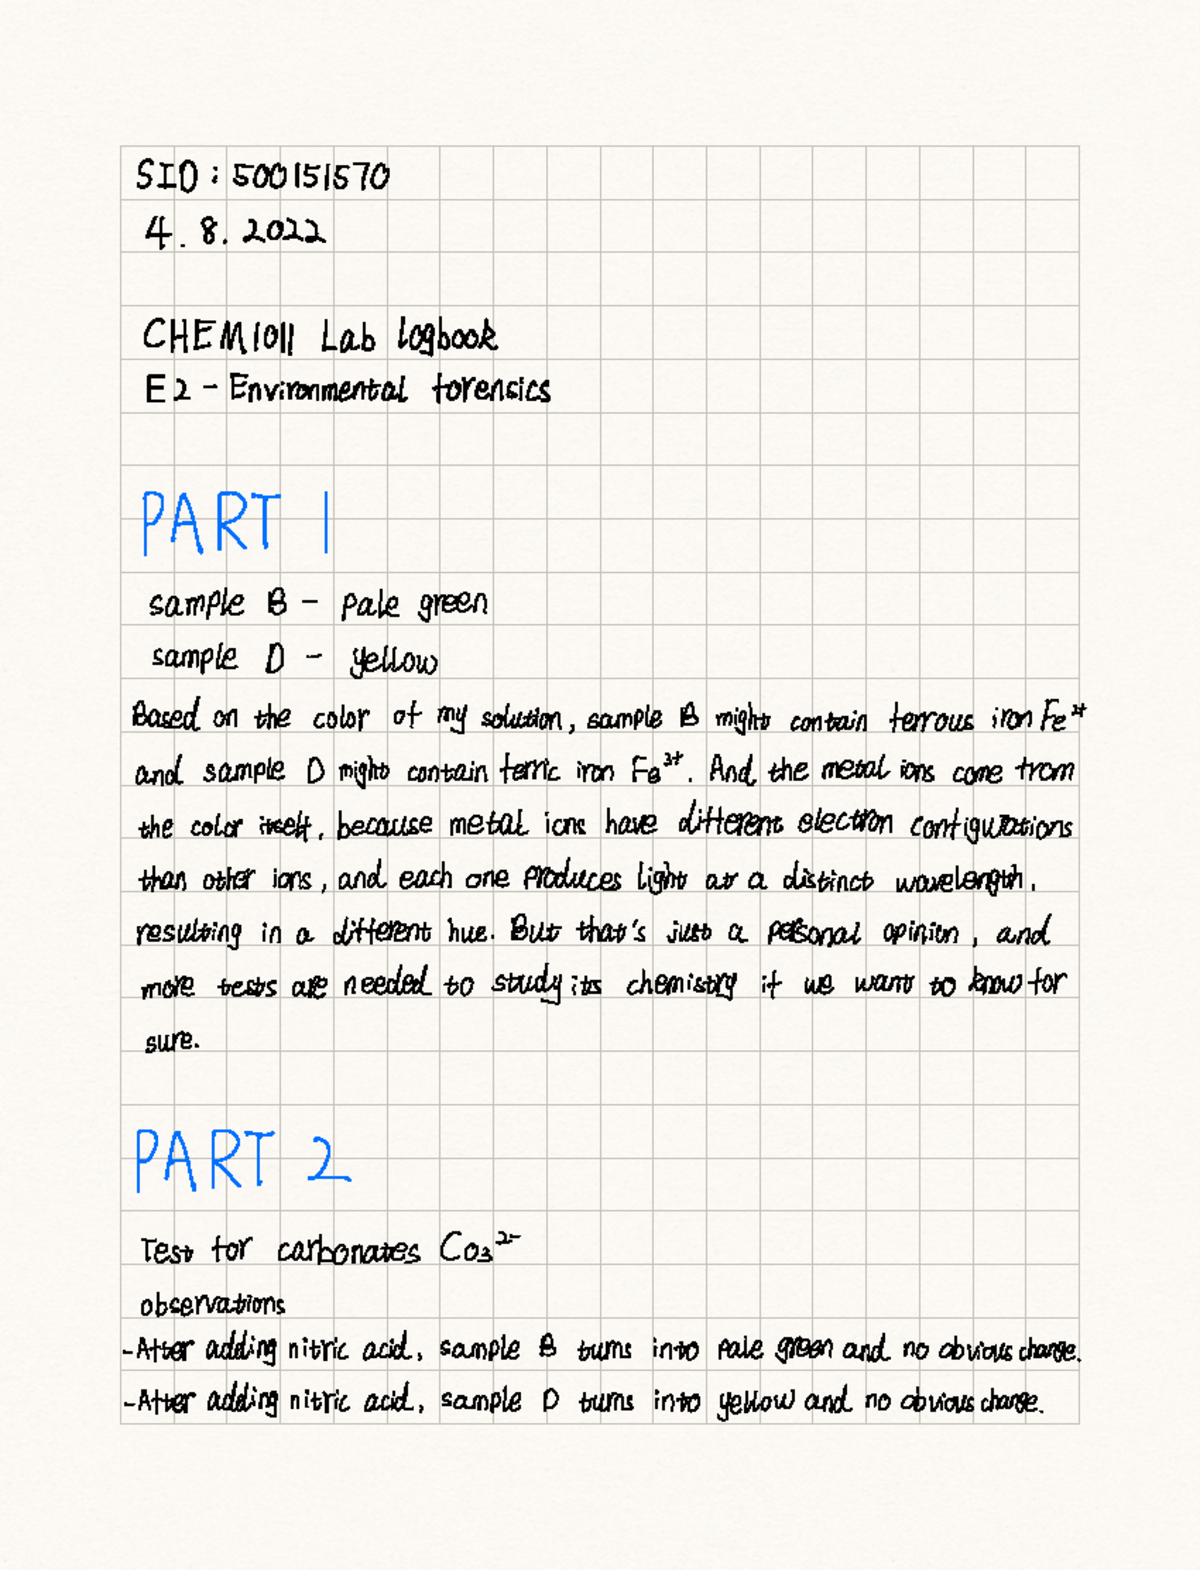 SID : 500151570
4. 8. 2022
CHEM1011 Lab logbook
E2 - Environmental forensics
PART 1
sample B - pale green
sample D - yellow
Based on the color of my solution, sample B might contain ferrous iron Fe²⁺
and sample D might contain ferric iron Fe³⁺. And the metal ions come from
the color itself, because metal ions have different electron configurations
than other ions, and each one produces light at a distinct wavelength,
resulting in a different hue. But that's just a personal opinion, and
more tests are needed to study its chemistry if we want to know for
sure.
PART 2
Test for carbonates CO₃²⁻
observations
-After adding nitric acid, sample B turns into pale green and no obvious change.
-After adding nitric acid, sample D turns into yellow and no obvious change.